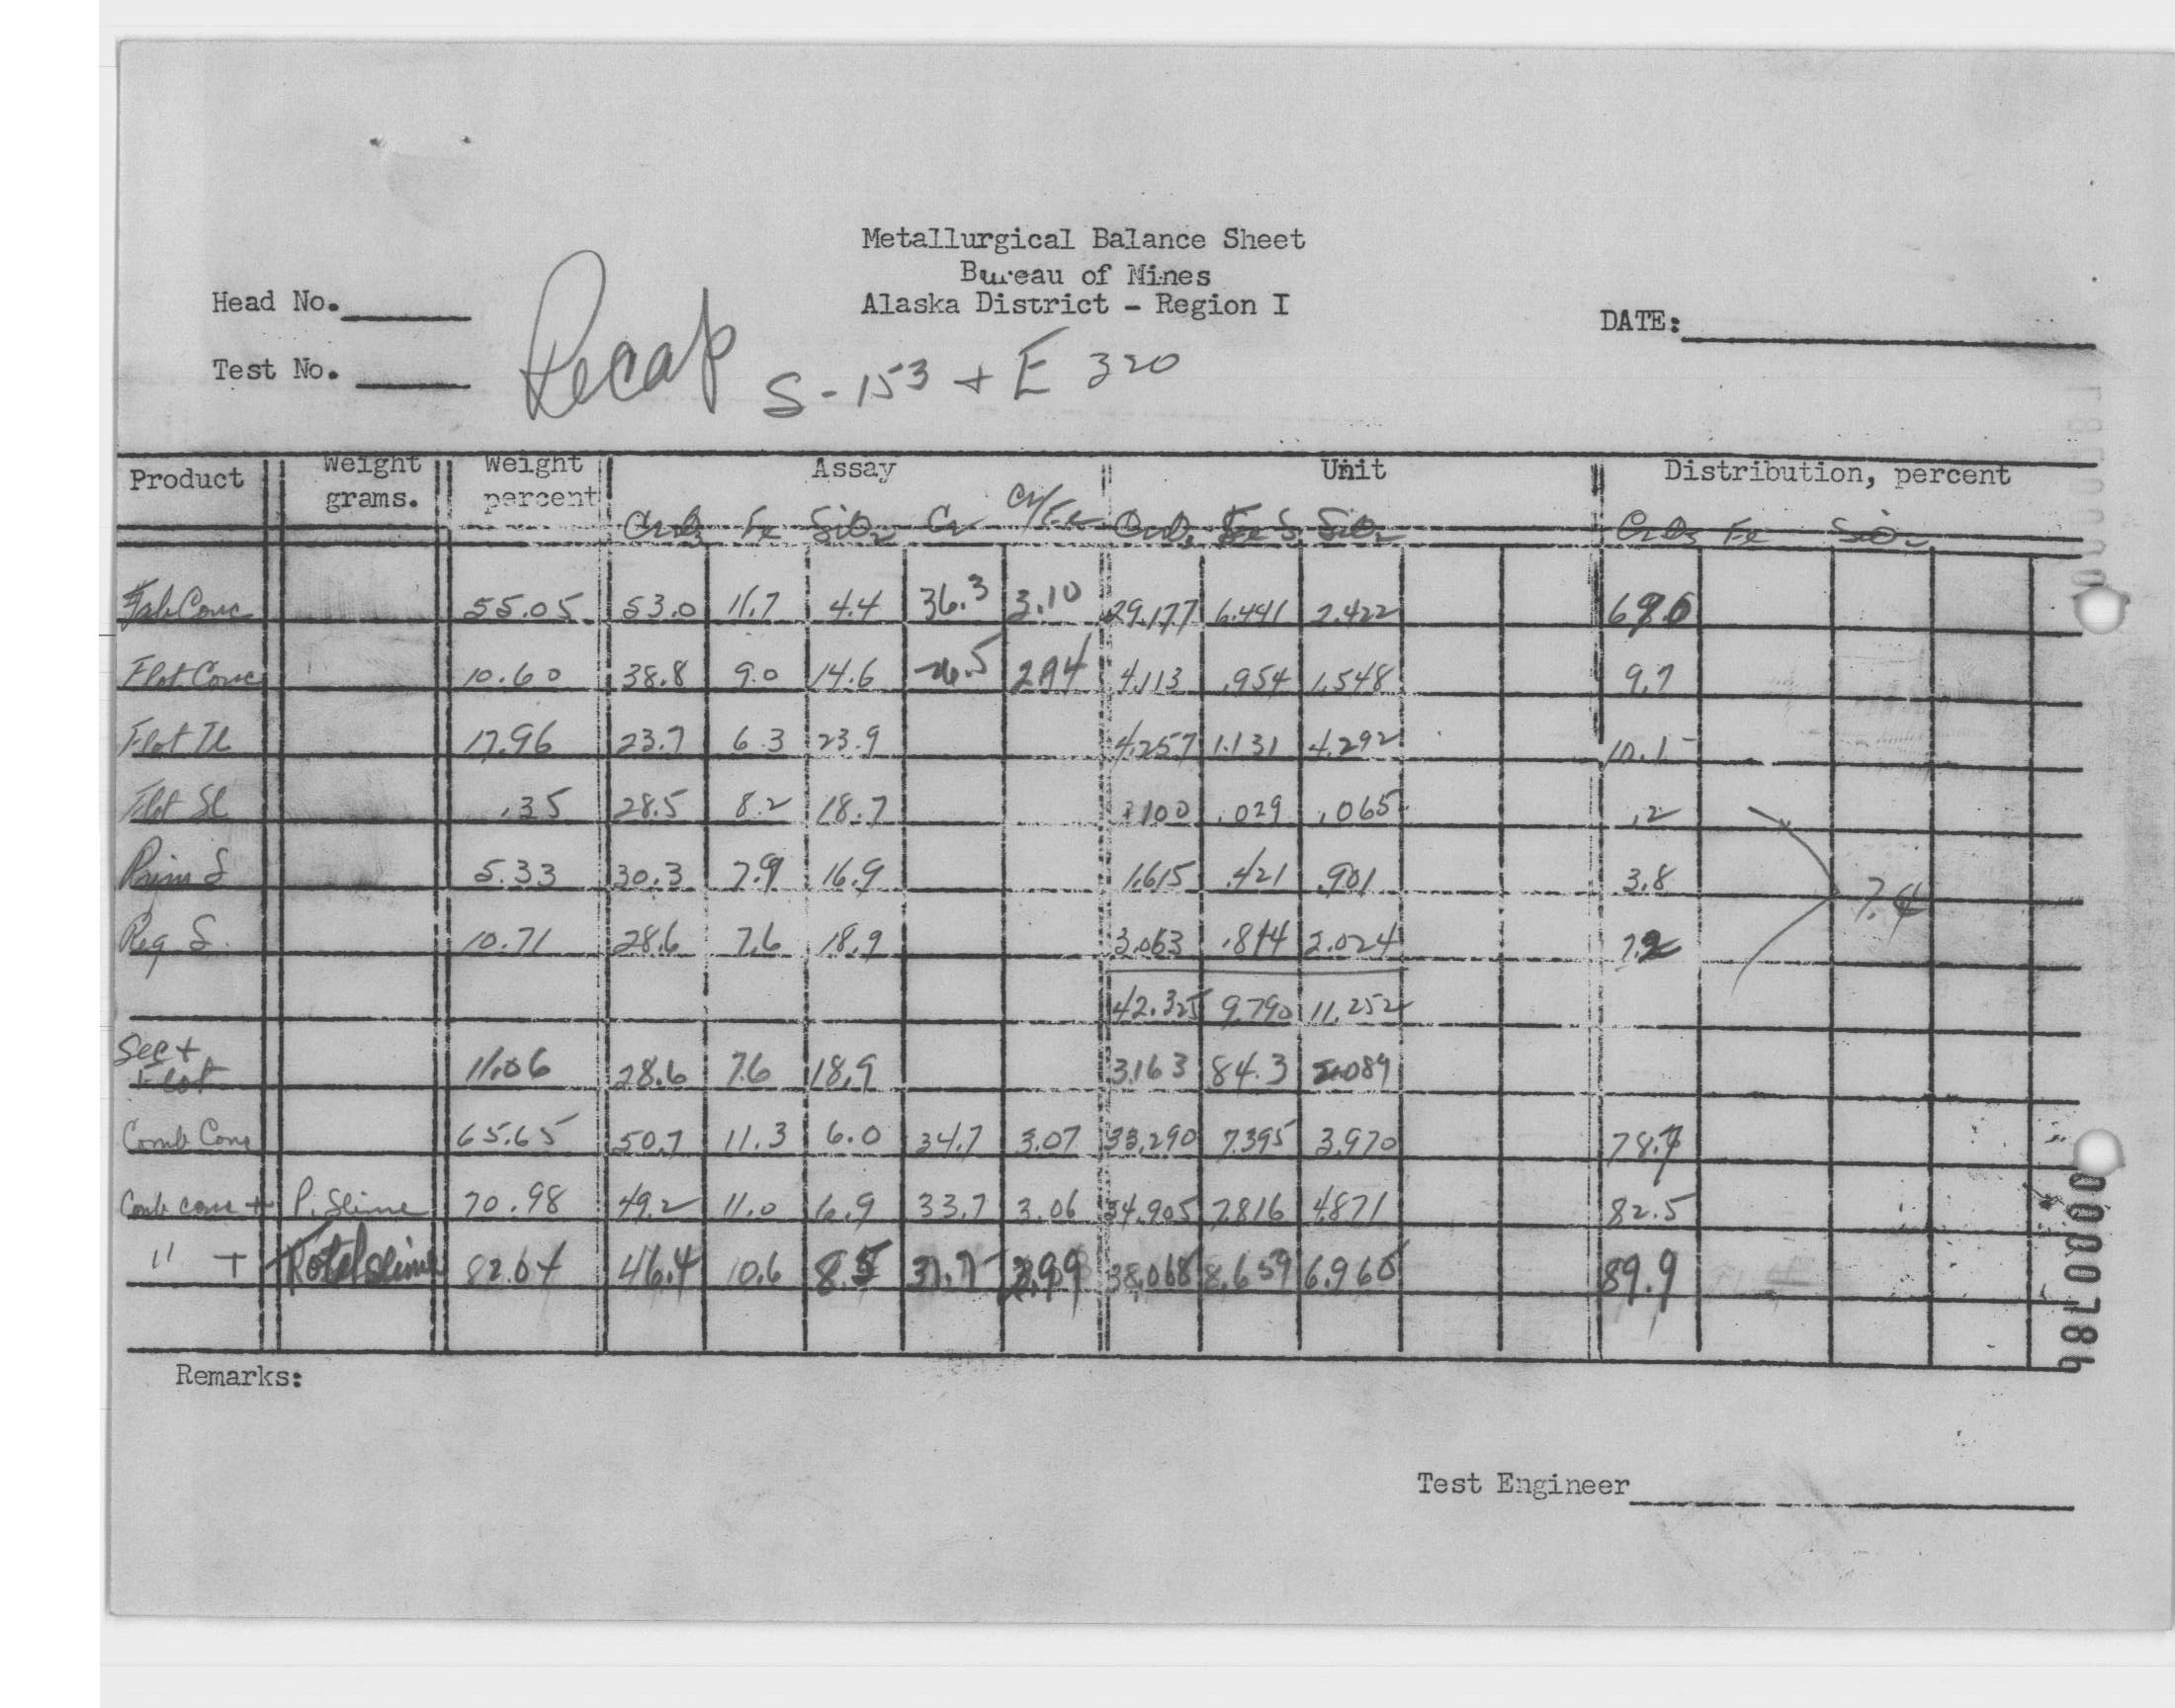 Metallurgical Balance Sheet
Bureau of Mines
Alaska District - Region I
Head No.
DATE:
Test No.
Recap S-153 + E 320
Product Weight grams. Weight percent Assay Unit Distribution, percent
Cr2O3 Fe SiO2 Cr Cr/Fe Cr2O3 Fe SiO2 Cr2O3 Fe SiO2
Tab Conc 55.05 53.0 11.7 4.4 36.3 3.10 29.177 6.441 2.422
Flot Conc 10.60 38.8 9.0 14.6 26.5 2.94 4.113 .954 1.548 9.7
Flot Tl 17.96 23.7 6.3 23.9 4.257 1.131 4.292 10.1
Flot Sl .35 28.5 8.2 18.7 .100 .029 .065 .2
Prim S 5.33 30.3 7.9 16.9 1.615 .421 .901 3.8
Reg S. 10.71 28.6 7.6 18.9 3.063 .814 2.024 7.2 7.4
42.325 9.790 11.252
Sec + Flot 11.06 28.6 7.6 18.9 3.163 84.3 2.089
Comb Conc 65.65 50.7 11.3 6.0 34.7 3.07 33.290 7.395 3.970 78.7
Comb conc + P. Slime 70.98 49.2 11.0 6.9 33.7 3.06 34.905 7.816 4.871 82.5
" + Total slime 82.04 46.4 10.6 8.5 2.99 38.068 8.659 6.960 89.9
Remarks:
Test Engineer
0000786